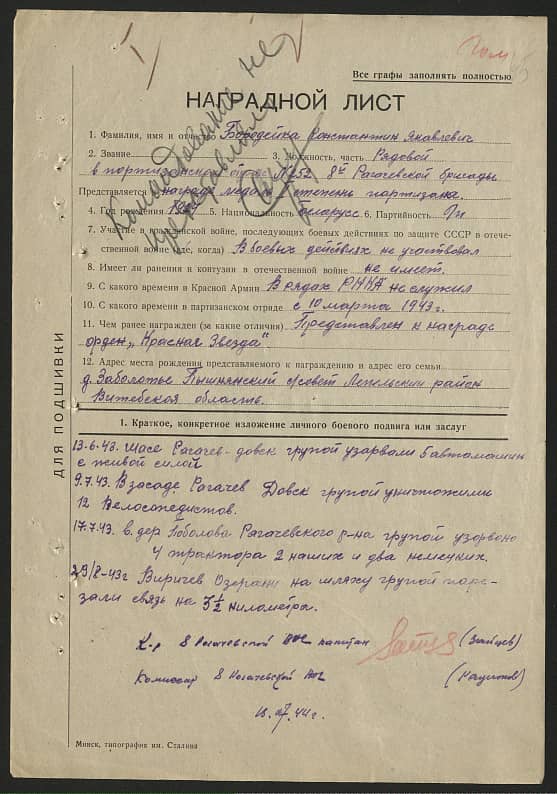 Все графы заполнять полностью
НАГРАДНОЙ ЛИСТ
1. Фамилия, имя и отчество Бородейка Константин Яковлевич
2. Звание 3. Должность, часть Рядовой
в партизанском отряде №252 8й Рагачевской бригады
Представляется к награде медаль 2 степень партизана.
4. Год рождения 5. Национальность белорусс 6. Партийность
7. Участие в гражданской войне, последующих боевых действиях по защите СССР в отече-
ственной войне (где, когда) В боевых действиях не участвовал
8. Имеет ли ранения и контузии в отечественной войне не имеет.
9. С какого времени в Красной Армии В рядах РККА не служил
10. С какого времени в партизанском отряде с 10 марта 1943г.
11. Чем ранее награжден (за какие отличия) Представлен к награде
орден „Красная Звезда"
12. Адрес места рождения представляемого к награждению и адрес его семьи
д. Заболотье с/совет Лепельский район
Витебской область.
ДЛЯ ПОДШИВКИ
1. Краткое, конкретное изложение личного боевого подвига или заслуг
13.6.43. Шасе Рагачев-довск групой узарвали 5 автамашин
с живой силой
9.7.43. В засаде Рагачев Довск групой уничтожили
12 Велосопедистов.
17.7.43. в дер Тоболова Рагачевского р-на групой узорвоно
4 трактора 2 наших и два немецких.
29/8-43г Виричев Озераны на шляху групой поре-
зали связь на 3½ километра.
К-р 8 Рогачевской капитан (Зайцев)
Комиссар 8 Рогачевской
44г.
Минск, типография им. Сталина
Командование не
представляло